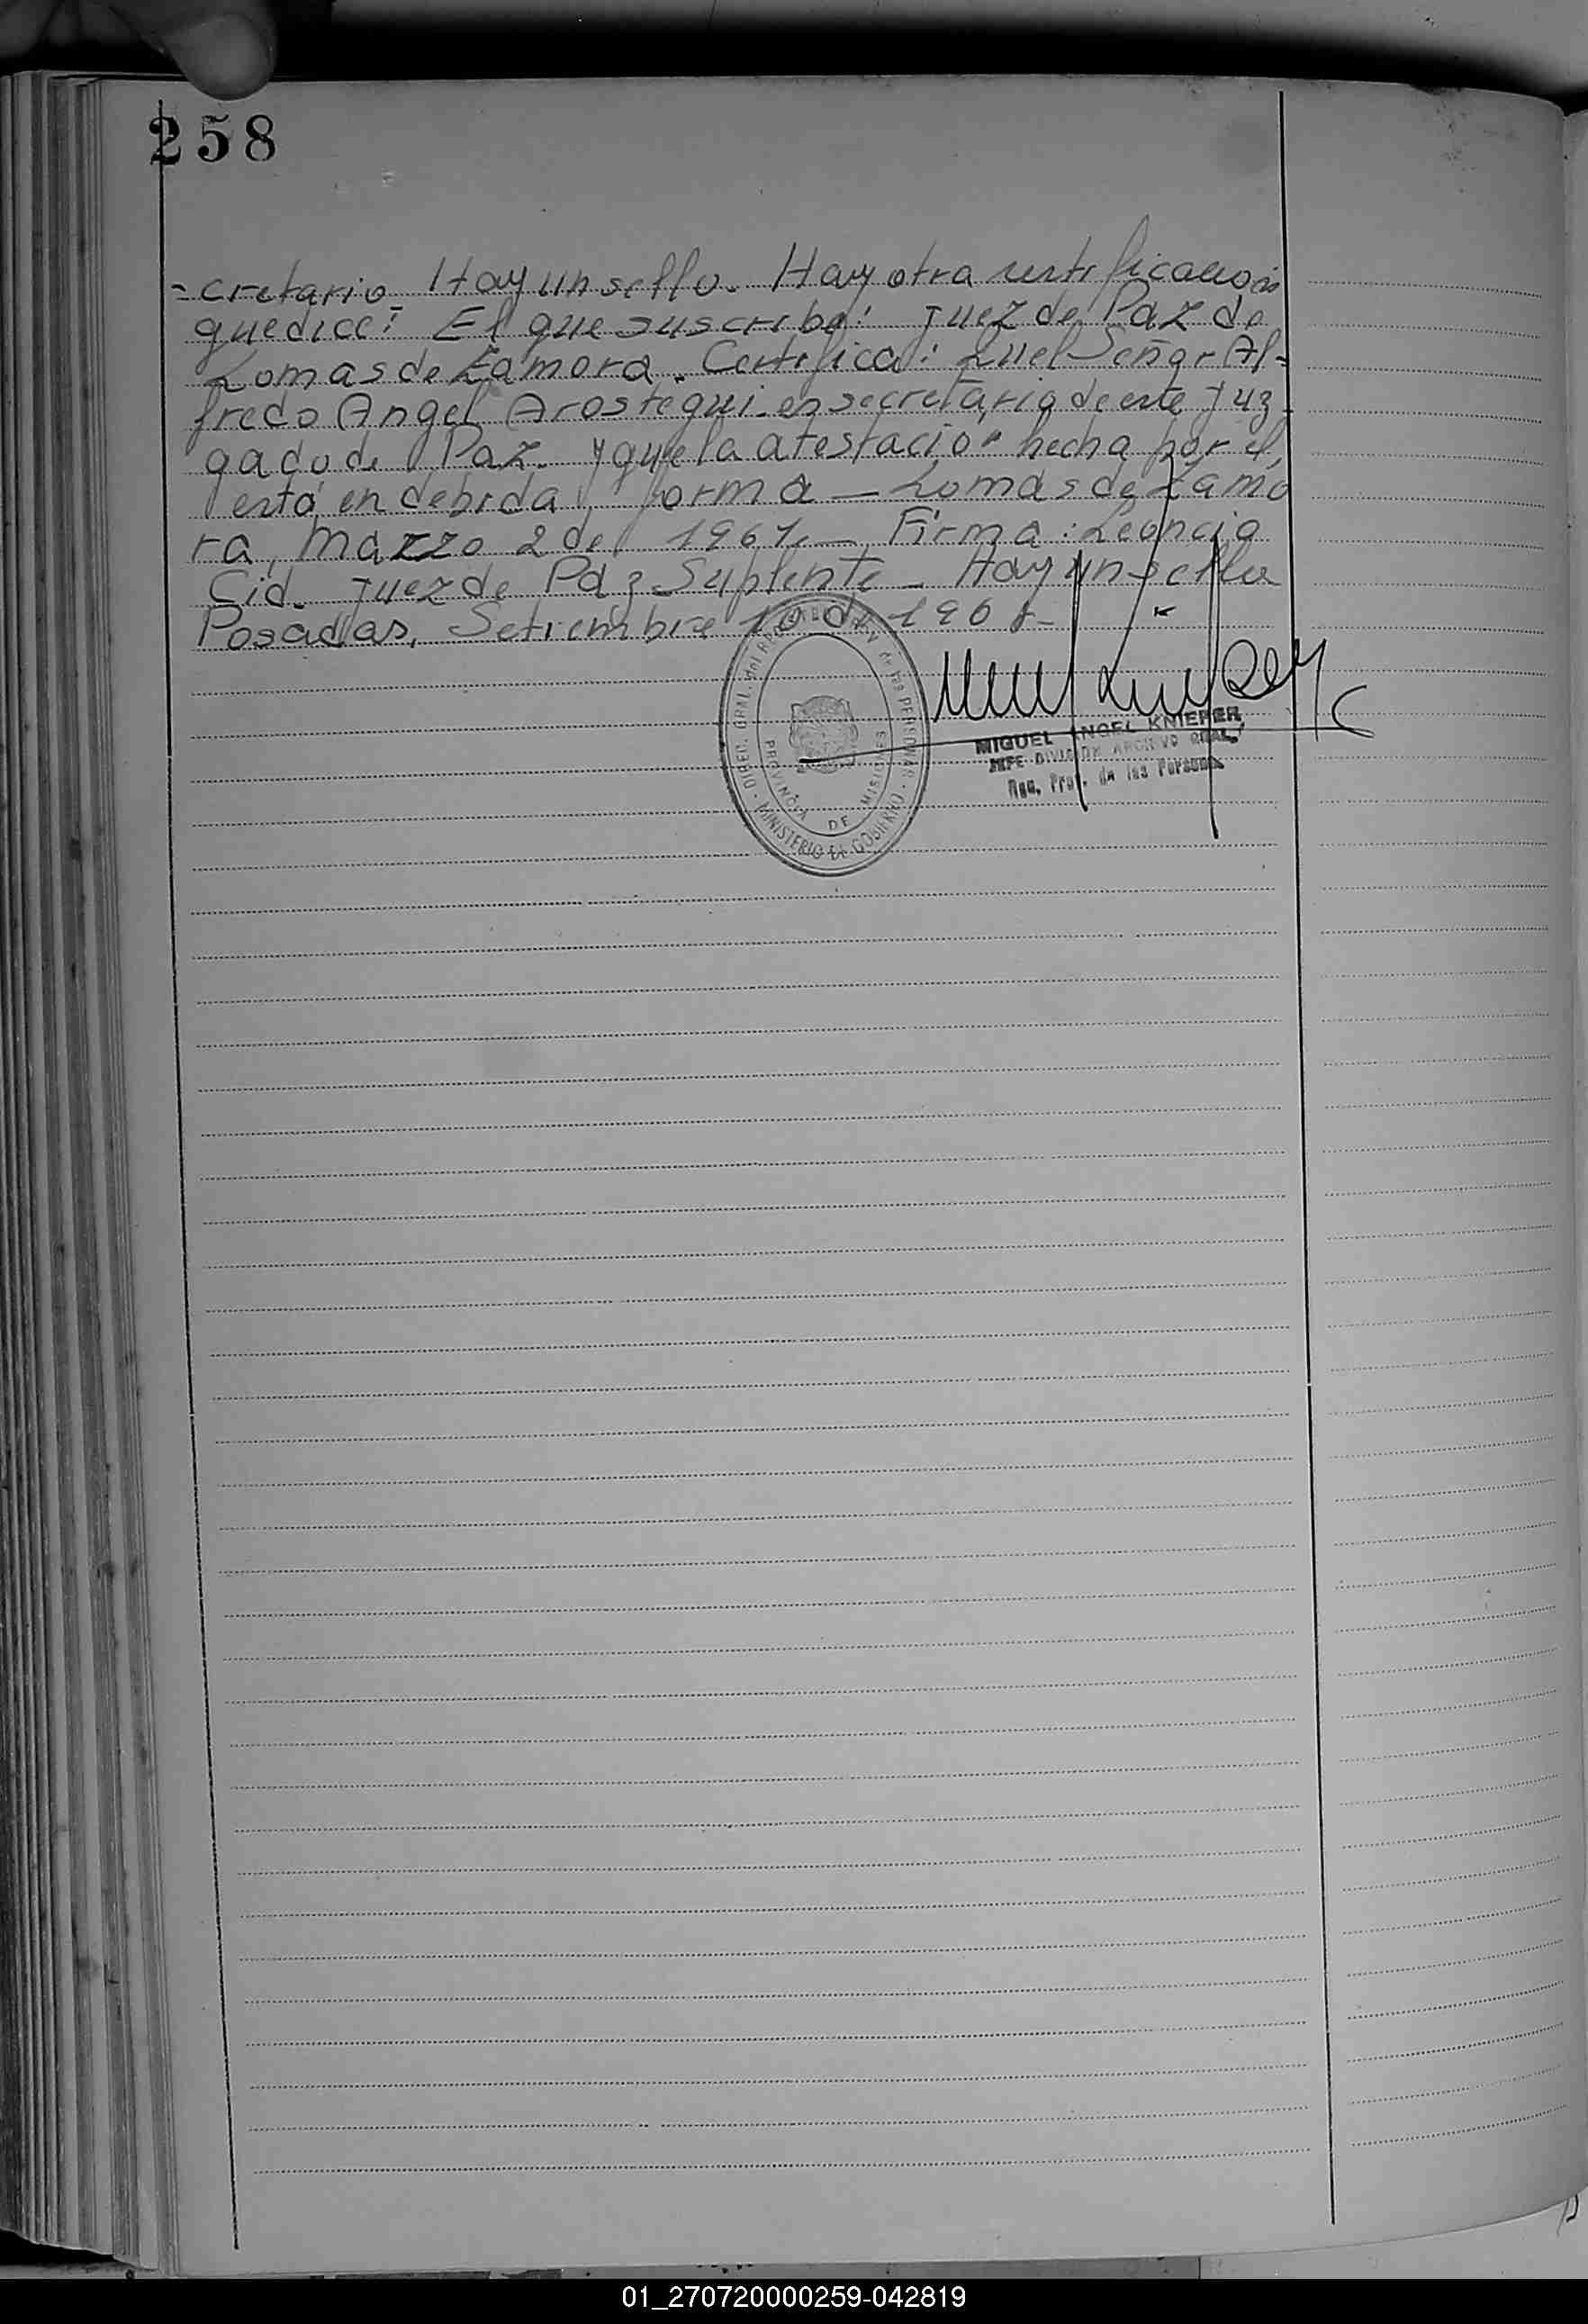 258
=cretario Hay un sello. Hay otra certificación
que dice: El que suscribe: Juez de Paz de
Lomas de Zamora. Certifica: Que el Señor Al=
fredo Angel Arostegui. es secretario de este Juz-
gado de Paz. y que la atestación hecha por el,
está en debida forma — Lomas de Zamo
ra, Marzo 2 de — Firma: Leoncio
Cid. Juez de Paz Suplente — Hay un sello
Posadas, Setiembre 10 de
MIGUEL ANGEL KNIEPER
JEFE DIVISION ARCHIVO GRAL.
Reg. Prov. de las Personas
DIREC. GRAL. del de las PERSONAS
PROVINCIA DE MISIONES
MINISTERIO DE GOBIERNO
01_270720000259-042819